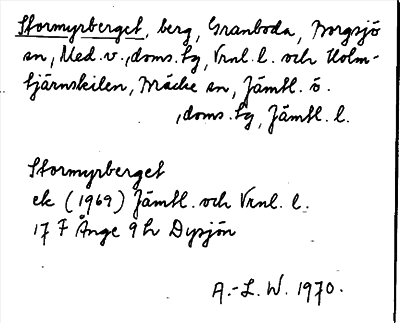 Stormyrberget, berg, Granboda, Borgsjö
sn, Med. v., doms. hg, Vrnl. l. och Holm-
tjärnskilen, Bräcke sn, Jämtl. ö.
, doms. hg, Jämtl. l.
Stormyrberget
ek (1969) Jämtl. och Vrnl. l.
17 F Ånge 9 h Dysjön
A.-L. W. 1970.